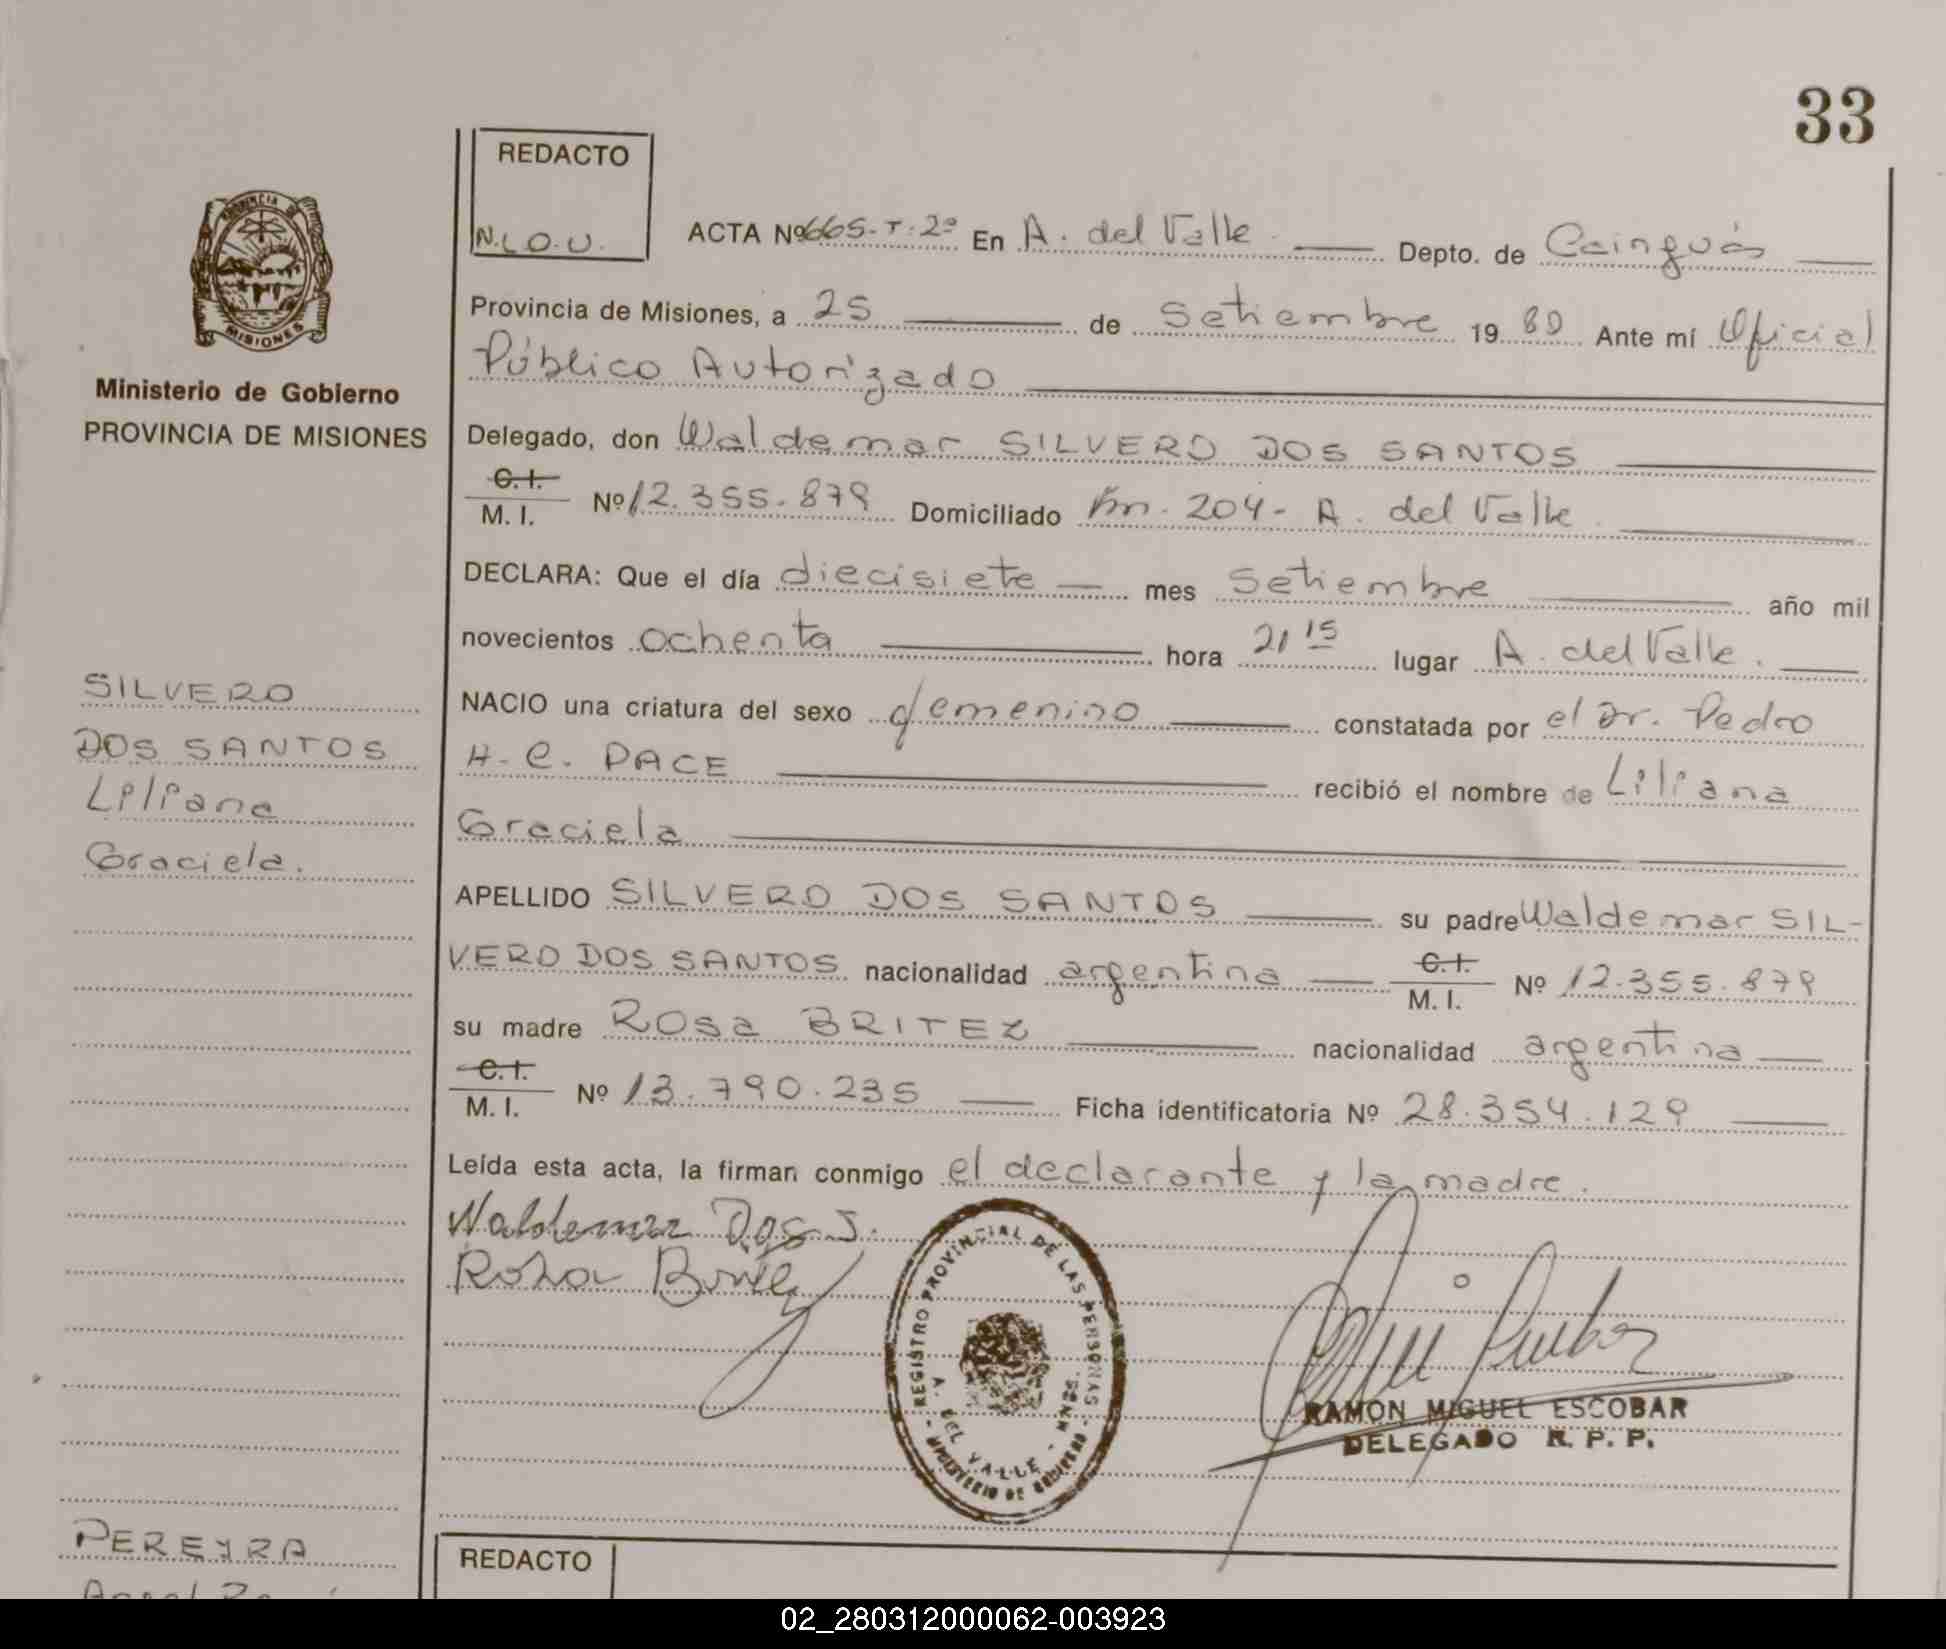 33
REDACTO
N.L.O.U.
ACTA Nº 665-T-2º En A. del Valle Depto. de Cainguás
Provincia de Misiones, a 25 de Setiembre 1980 Ante mí Oficial
Público Autorizado
PROVINCIA DE
MISIONES
Ministerio de Gobierno
PROVINCIA DE MISIONES
Delegado, don Waldemar SILVERO DOS SANTOS
C.I.
M. I. Nº 12.355.879 Domiciliado Km. 204- A. del Valle.
DECLARA: Que el día diecisiete mes Setiembre año mil
novecientos ochenta hora 21 15 lugar A. del Valle.
SILVERO
DOS SANTOS
Liliana
Graciela.
NACIO una criatura del sexo femenino constatada por el Dr. Pedro
H. C. PACE recibió el nombre de Liliana
Graciela
APELLIDO SILVERO DOS SANTOS su padre Waldemar SIL-
VERO DOS SANTOS nacionalidad argentina C.I.
M. I. Nº 12.355.879
su madre Rosa BRITEZ nacionalidad argentina
C.I.
M. I. Nº 13.790.235 Ficha identificatoria Nº 28.354.129
Leída esta acta, la firman conmigo el declarante y la madre.
Waldemar Dos S.
Rosa Britez
REGISTRO PROVINCIAL DE LAS PERSONAS
A. DEL VALLE - MNES.
MINISTERIO DE GOBIERNO
RAMON MIGUEL ESCOBAR
DELEGADO R. P. P.
PEREYRA
REDACTO
02_280312000062-003923